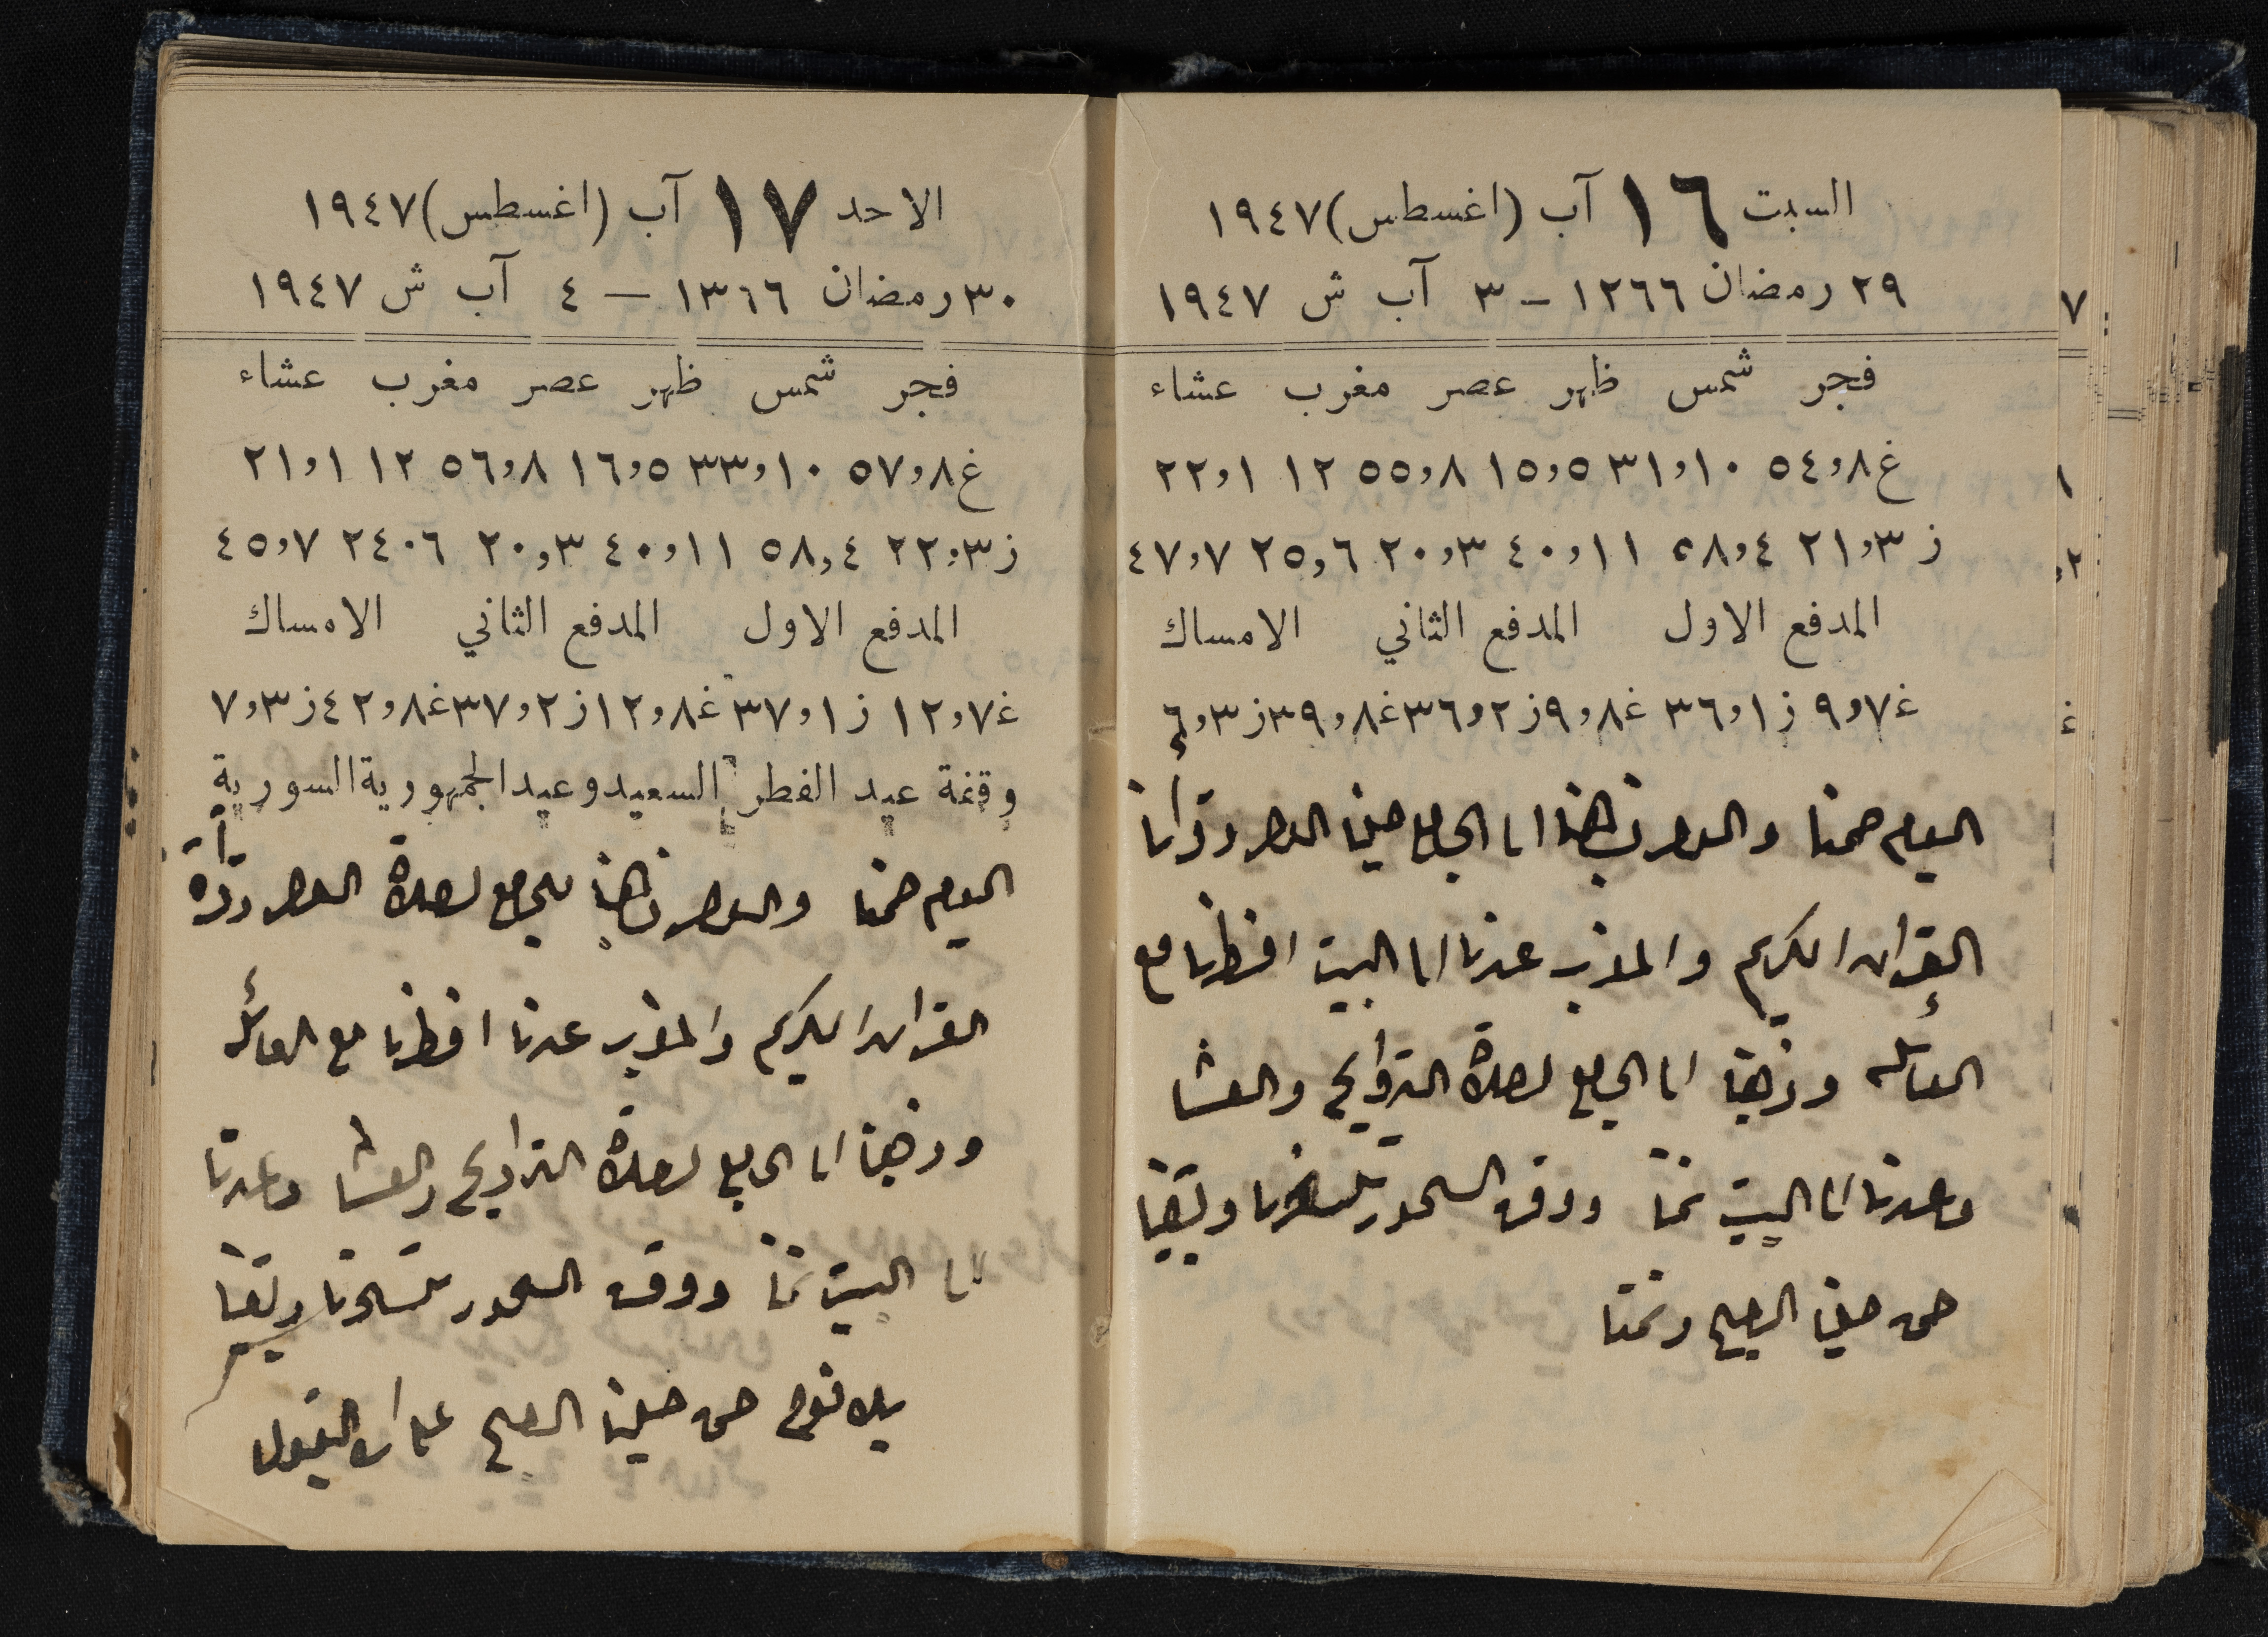 السبت ١٦ آب (اغسطس) ١٩٤٧
٢٩ رمضان ١٢٦٦ - ٣ آب ش ١٩٤٧
فجر شمس ظهر عصر مغرب عشاء
غ ٥٤,٨ ٣١,١٠ ١٥,٥ ٥٥,٨ ١٢ ٢٢,١
ز ٢١,٣ ٥٨,٤ ٤٠,١١ ٢٠,٣ ٢٥,٦ ٤٧,٧
المدفع الاول المدفع الثاني الامساك
غ ٩,٧ ز ٣٦,١ غ ٩,٨ ز ٣٦,٢ غ ٣٩,٨ ز ٦,٣
اليوم صمنا والعصر ذهبنا الى الجامع صلينا العصر وقرأنا
القرآن الكريم والمغرب عدنا الى البيت افطرنا مع
العائله وذهبنا الى الجامع لصلاة التراويح والعشا
وعدنا الى البيت نمنا ووقت السحور تسحرنا وبقينا
حتى صلينا الصبح ونمنا
الاحد ١٧ آب (اغسطس) ١٩٤٧
٣٠ رمضان ١٣٦٦ - ٤ آب ش ١٩٤٧
فجر شمس ظهر عصر مغرب عشاء
غ ٥٧,٨ ٣٣,١٠ ١٦,٥ ٥٦,٨ ١٢ ٢١,١
ز ٢٢,٣ ٥٨,٤ ٤٠,١١ ٢٠,٣ ٢٤٠٦ ٤٥,٧
المدفع الاول المدفع الثاني الامساك
غ ١٢,٧ ز ٣٧,١ غ ١٢,٨ ز ٣٧,٢ غ ٤٢,٨ ز ٧,٣
وقفة عيد الفطر السعيد وعيد الجمهورية السورية
اليوم صمنا والعصر ذهبنا للجامع لصلاة العصر وقرأة
القرآن الكريم والمغرب عدنا افطرنا مع العائله
وذهبنا الى الجامع لصلاة التراويح والعشا وعدنا
الى البيت نمنا ووقت السحور تسحرنا وبقينا
بلا نوم حتى صلينا الصبح